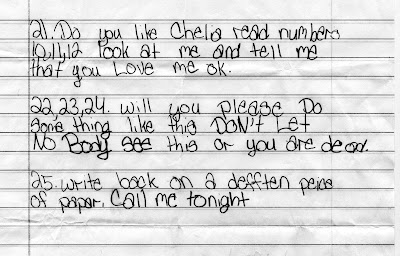 21. Do you like Chela read numbers
10,11,12 look at me and tell me
that you Love me ok.
22,23,24. will you please Do
Some thing like this DON't Let
No Body see this or you are dead.
25. write back on a defften peice
of paper. Call me tonight